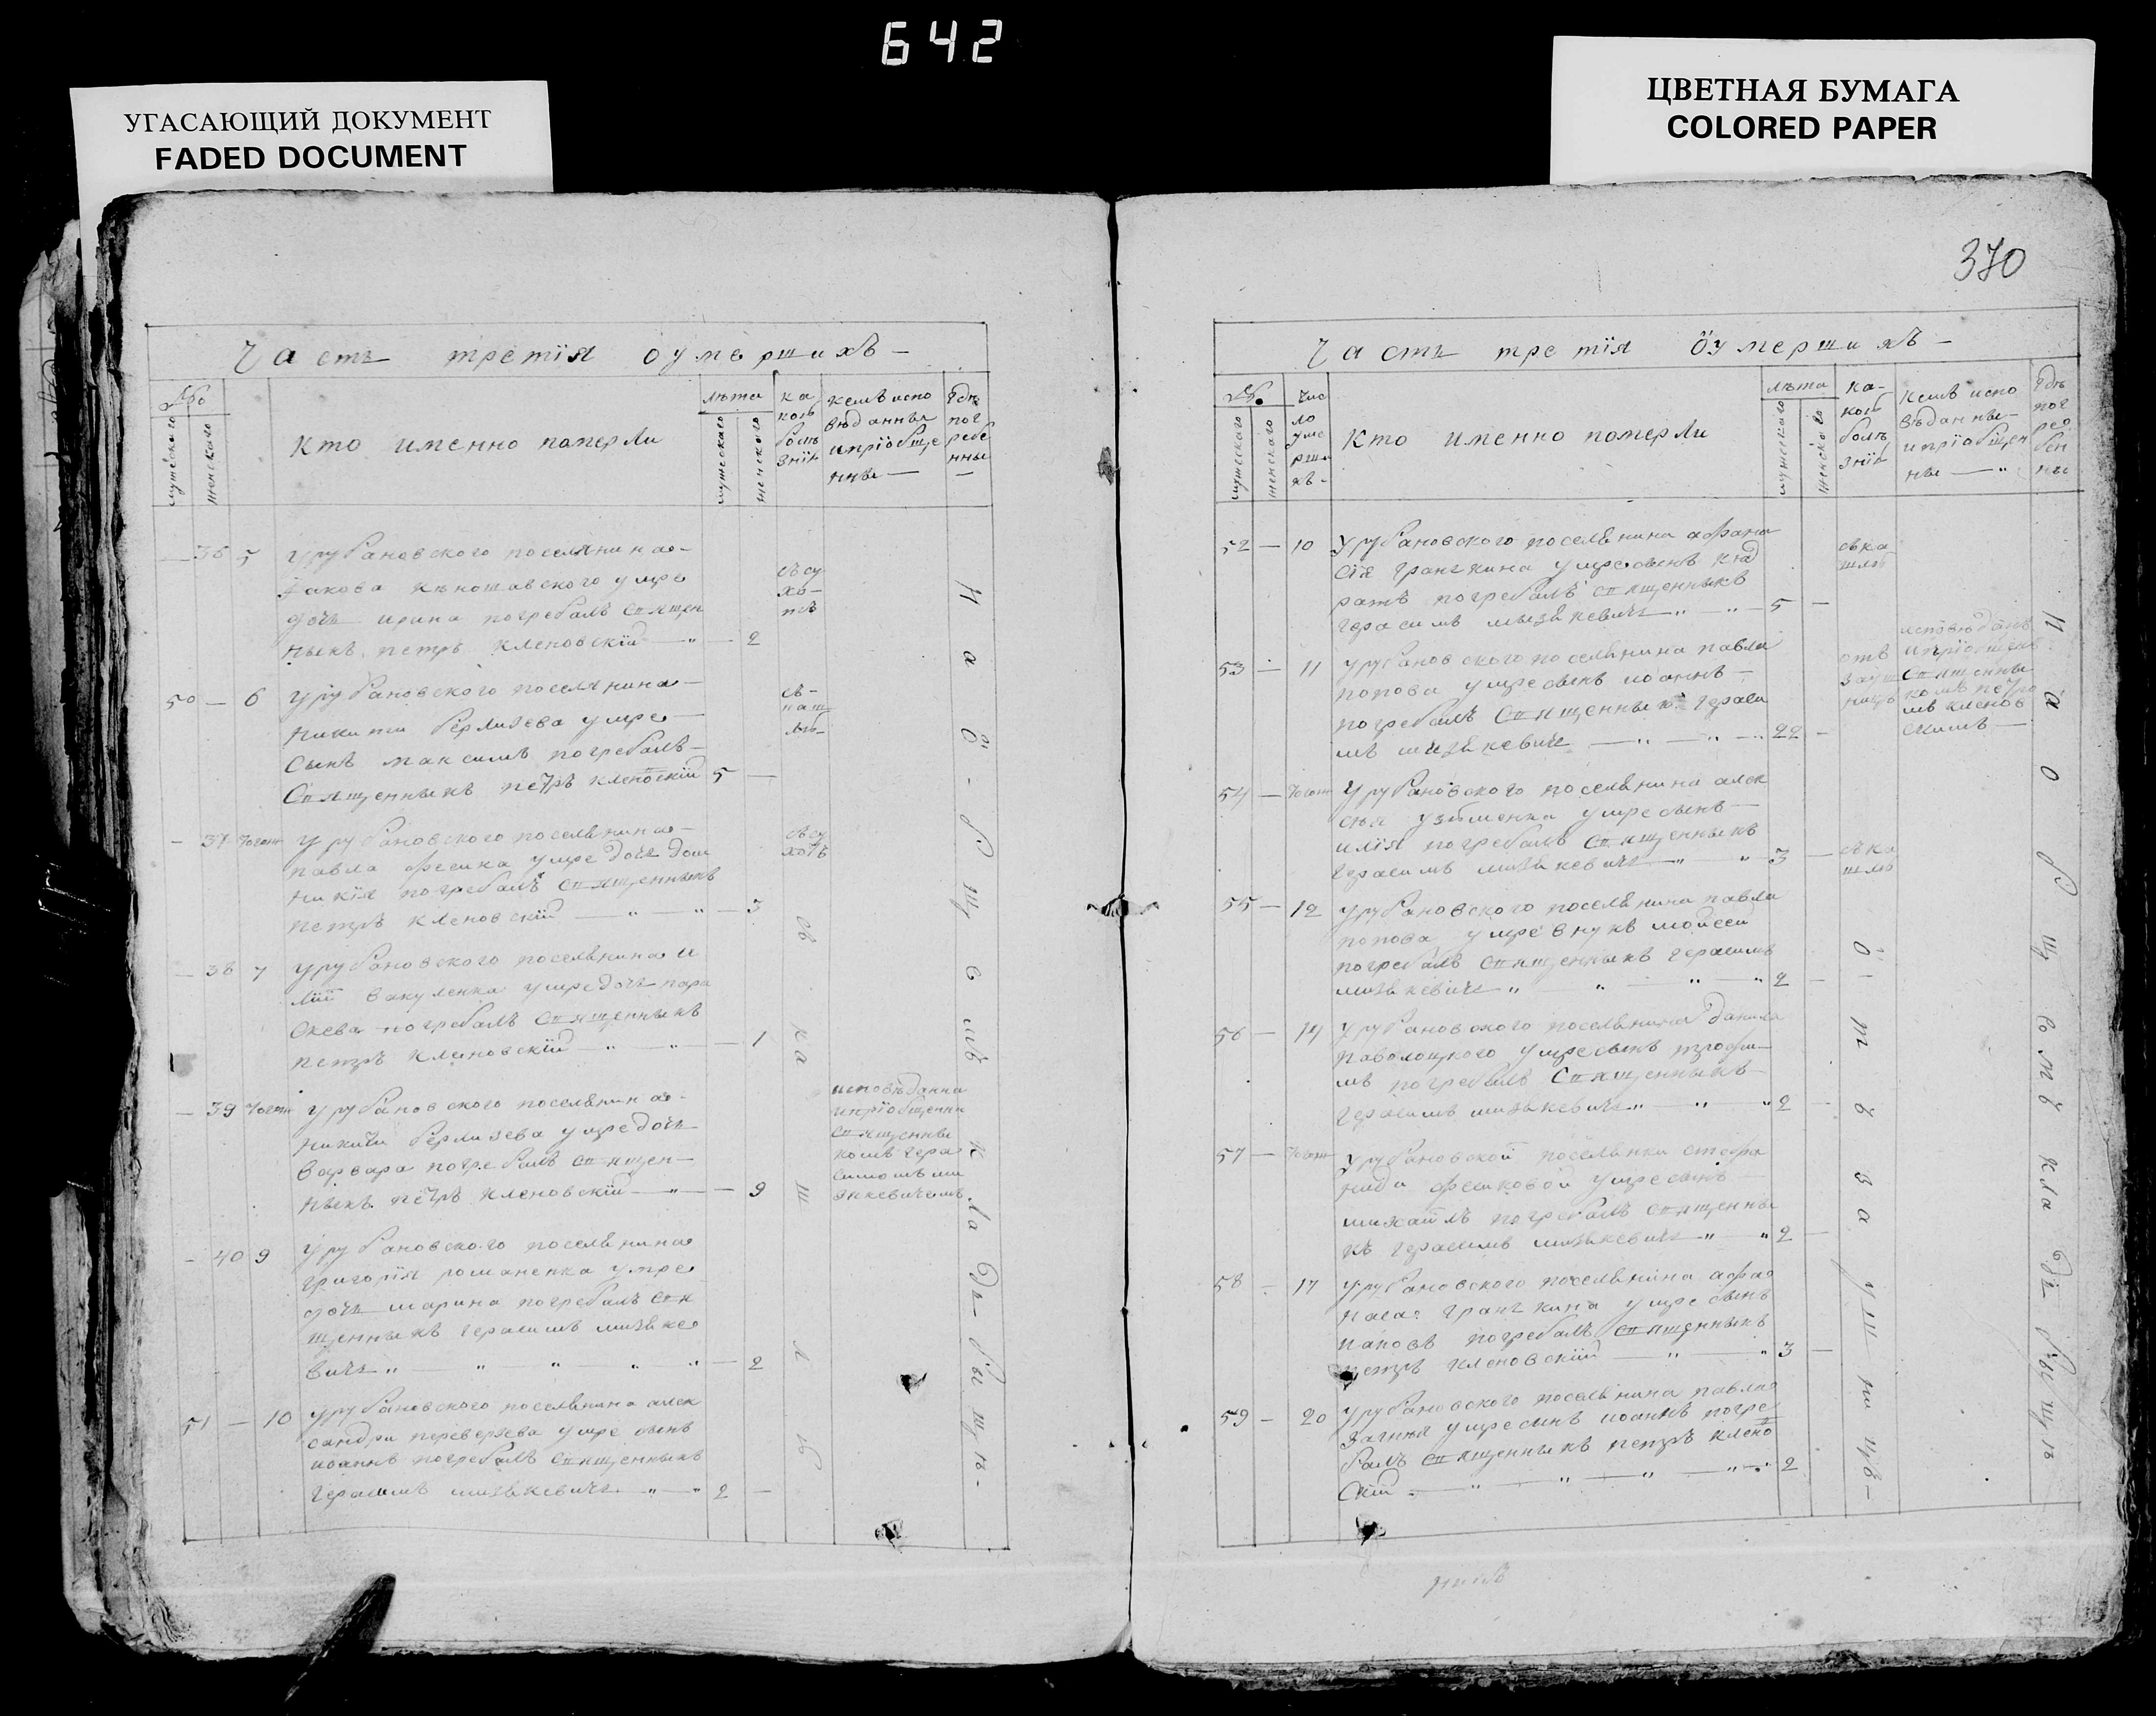 642
УГАСАЮЩИЙ ДОКУМЕНТ
FADED DOCUMENT
ЦВЕТНАЯ БУМАГА
COLORED PAPER
370
Часть третїя оумершихъ —
№
мужеского
женского
кто именно померли
лѣта
мужеского
женского
ка
кою
болѣ
знїю
кемъ испо
вѣданны
и прїобще
нны —
гдѣ
пог
ребе
нны
—
— 36 5 У рубановского поселянина —
Іакова умре
дочь ирина погребалъ сп ящен
ныкъ петръ кленовскїй — „ — 2
съ су
хо —
тъ
50 — 6 У рубановского поселянина —
Никити Бермизева умре —
Сынъ максимъ погребалъ —
Сп ященныкъ петръ кленовскїй 5 —
— 37 Тогож У рубановского поселянина —
павла фесика умре дочь дом
никїя погребалъ сп ященныкъ
петръ кленовскїй — „ — „ — 3
съ су
хотъ
— 38 7 У рубановского поселянина и
лїи вакуленка умре дочь пара
скева погребалъ сп ященныкъ
петръ кленовскїй — „ — „ — 1
— 39 Тогож У рубановского поселянина —
Никити Бермизева умре дочь
Варвара погребалъ сп ящен —
ныкъ петръ кленовскїй — „ — 9
исповѣданна
и прїобщенна
сп ященны
комъ гера
симомъ ми
зкевичемъ
— 40 9 У рубановского поселянина
григорїя романенка умре
дочь марина погребалъ сп я
щенныкъ герасимъ мизкке
вичь „ — „ „ „ „ — 2
51 — 10 У рубановского поселянина алек
сандра переверзева умре сынъ
иоаннъ погребалъ сп ященныкъ
герасимъ мизкевичь — „ — „ 2 —
съ кашлю
На общемъ кладбыщѣ —
Часть третїя оумершихъ —
№
мужеского
женского
Чис
ло
уме
рши
хъ —
Кто именно померли
лѣта
мужеского
женского
ка —
кою
болѣ
знїю
кемъ испо
вѣданны —
и прїобщен
ны — „
гдѣ
пог
ре
бен
ны
52 — 10 У рубановского поселянина афана
сїя гранкина умре сынъ конд
ратъ погребалъ сп ященныкъ
герасимъ мизкевичь „ — „ — 5 —
съ ка
шлю
53 — 11 У рубановского поселянина павла
попова умре сынъ иоаннъ —
погребалъ сп ященныкъ гераси
мъ мизкевичь — „ — „ — „ 22 —
исповѣданъ
и прїобщенъ
сп ященны
комъ петро
мъ кленов
скимъ —
54 — Тогож У рубановского поселянина алек
сѣя умре сынъ —
илїя погребалъ сп ященныкъ
герасимъ мизкевичь — „ — „ 3 —
съ ка
шлю
55 — 12 У рубановского поселянина павла
попова умре внукъ мойсей
погребалъ сп ященныкъ герасимъ
мизкевичь „ — „ — „ — „ 2 —
56 — 14 У рубановского поселянина данила
паволоцкого умре сынъ трофи —
мъ погребалъ сп ященныкъ —
герасимъ мизкевичь „ — „ — „ 2 —
57 — Тогож У рубановской поселянки стефа
ниди фесиковой умре сынъ —
михаїлъ погребалъ сп ященны
къ герасимъ мизкевичь „ — „ 2 —
58 — 17 У рубановского поселянина афа
наса гранкина умре сынъ
погребалъ сп ященныкъ
петръ кленовскїй — „ — „ 3 —
59 — 20 У рубановского поселянина павла
умре сынъ иоаннъ погре
балъ сп ященныкъ петръ клено
скїй — „ — „ — „ — „ 2
отъ заушницъ —
На общемъ кладбыщѣ